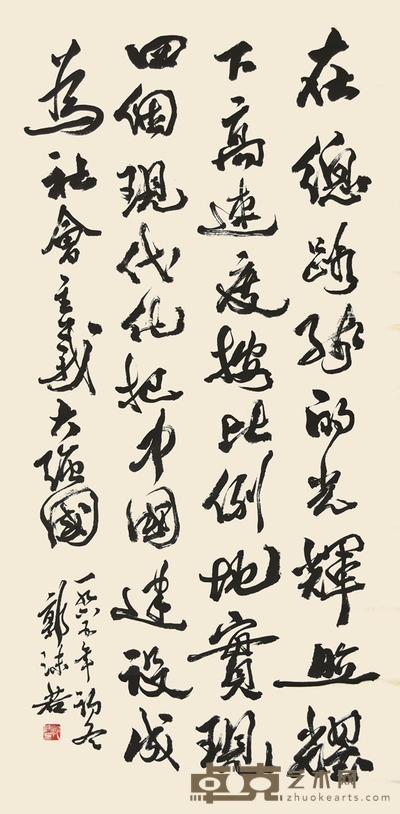 在總路綫的光輝照耀
下高速度按比例地實現
四個現代化把中國建設成
為社會主義大強國
一九六五年初冬
郭沫若
卓克艺术网
zhuokearts.com